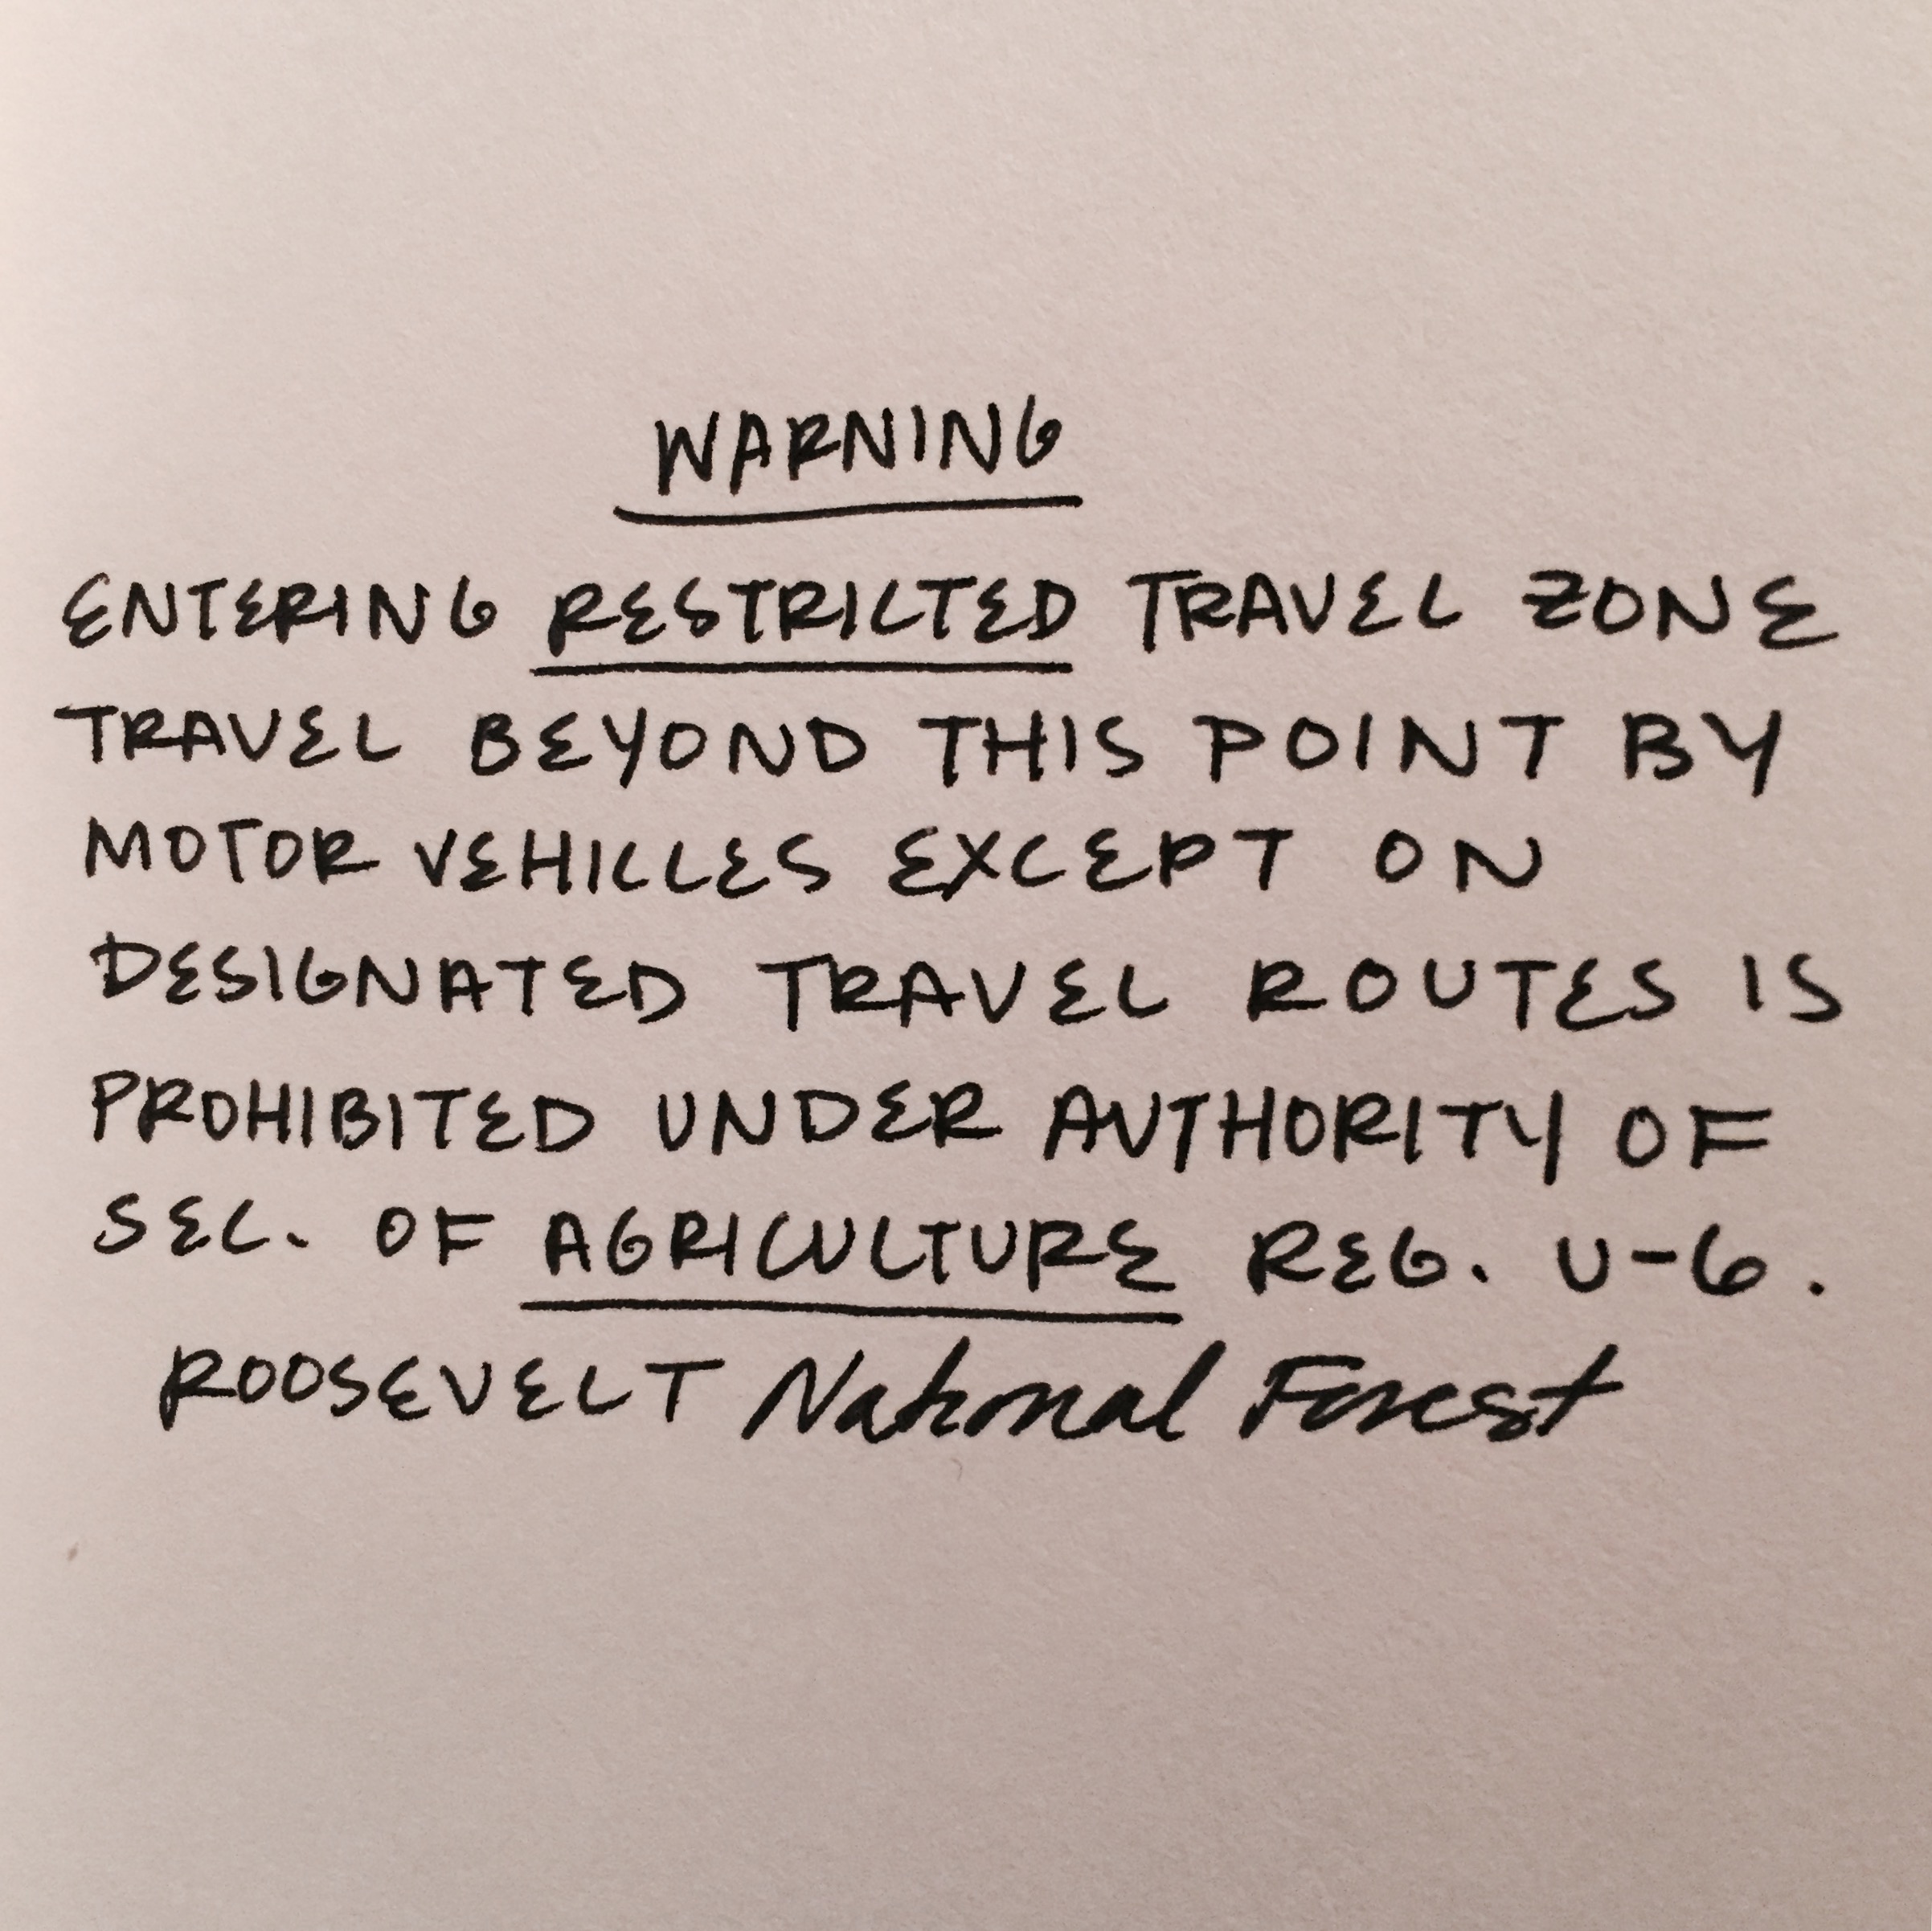 WARNING
ENTERING RESTRICTED TRAVEL ZONE
TRAVEL BEYOND THIS POINT BY
MOTOR VEHICLES EXCEPT ON
DESIGNATED TRAVEL ROUTES IS
PROHIBITED UNDER AUTHORITY OF
SEC. OF AGRICULTURE REG. U-6.
ROOSEVELT National Forest